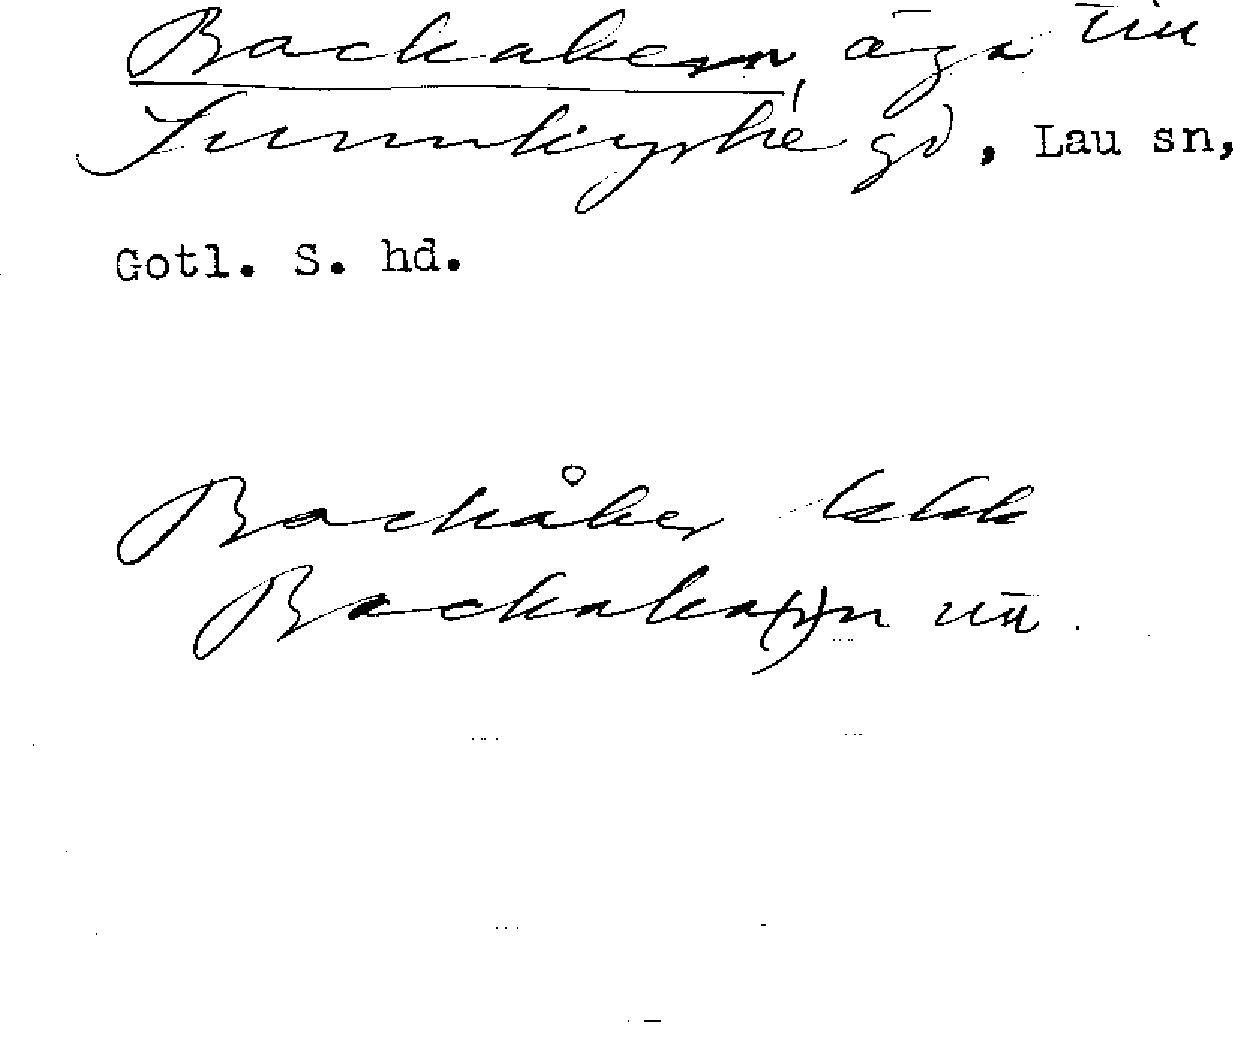 Backakern, äga till
Sunnkyrke gd, Lau sn,
Gotl. S. hd.
Backåker
Backaka(r)n